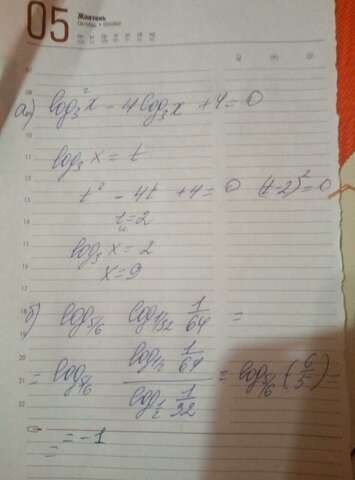 05 Жовтень
Октябрь • October
а) log₃²x - 4log₃x + 4 = 0
log₃x = t
t² - 4t + 4 = 0 (t-2)² = 0
t = 2
log₃x = 2
x = 9
б) log₅/₆ log₁/₃₂ 1/64 =
= log₅/₆ (log₁/₂ 1/64)/(log₁/₂ 1/32) = log₅/₆ (6/5) =
= -1